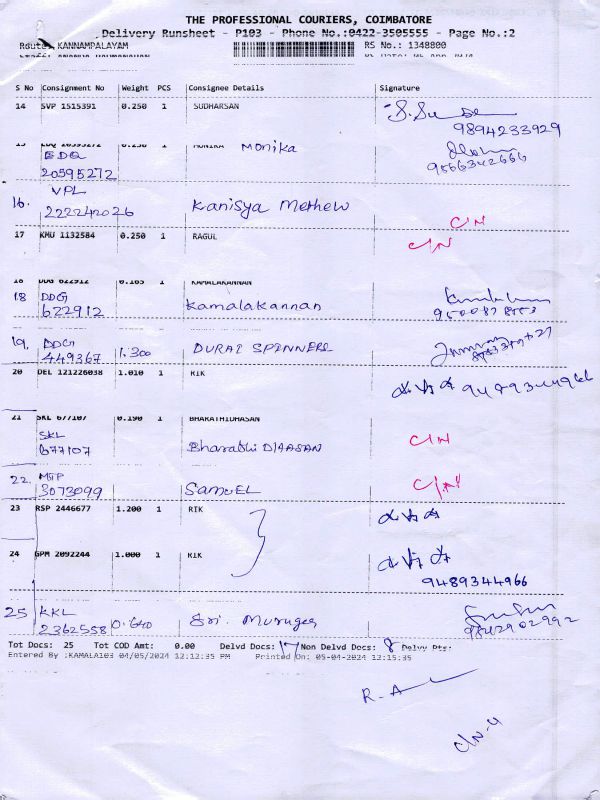 THE PROFESSIONAL COURIERS, COIMBATORE
Delivery Runsheet - P103 - Phone No.:0422-3505555 - Page No.:2
Route: KANNAMPALAYAM RS No.: 1348800
S No Consignment No Weight PCS Consignee Details Signature
14 SVP 1515391 0.250 1 SUDHARSAN
9894233929
15 EDQ 20595272 0.250 1 MONIKA Monika
EDQ 9566342666
20595272
VPL
16. 222242026 Kanisya Methew C/N
17 KMU 1132584 0.250 1 RAGUL C/N
18 DDG 622912 0.165 1 KAMALAKANNAN
18 DDG Kamalakannan
622912
19. DDG 1.300 DURAI SPINNERS
449367
20 DEL 121226038 1.010 1 RIK 9489344966
21 SKL 677107 0.190 1 BHARATHIDHASAN
SKL C/N
677107 Bharathi DHASAN
22. MTP C/N
3073099 SamuEL
23 RSP 2446677 1.200 1 RIK
24 GPM 2092244 1.000 1 RIK
9489344966
25 KKL 0.640 Sri. Muruga
2362558 9842902992
Tot Docs: 25 Tot COD Amt: 0.00 Delvd Docs: 17 Non Delvd Docs: 8 Delvy Pts:
Entered By :KAMALA103 04/05/2024 12:12:35 PM Printed On: 05-04-2024 12:15:35
R.A
C/N-4